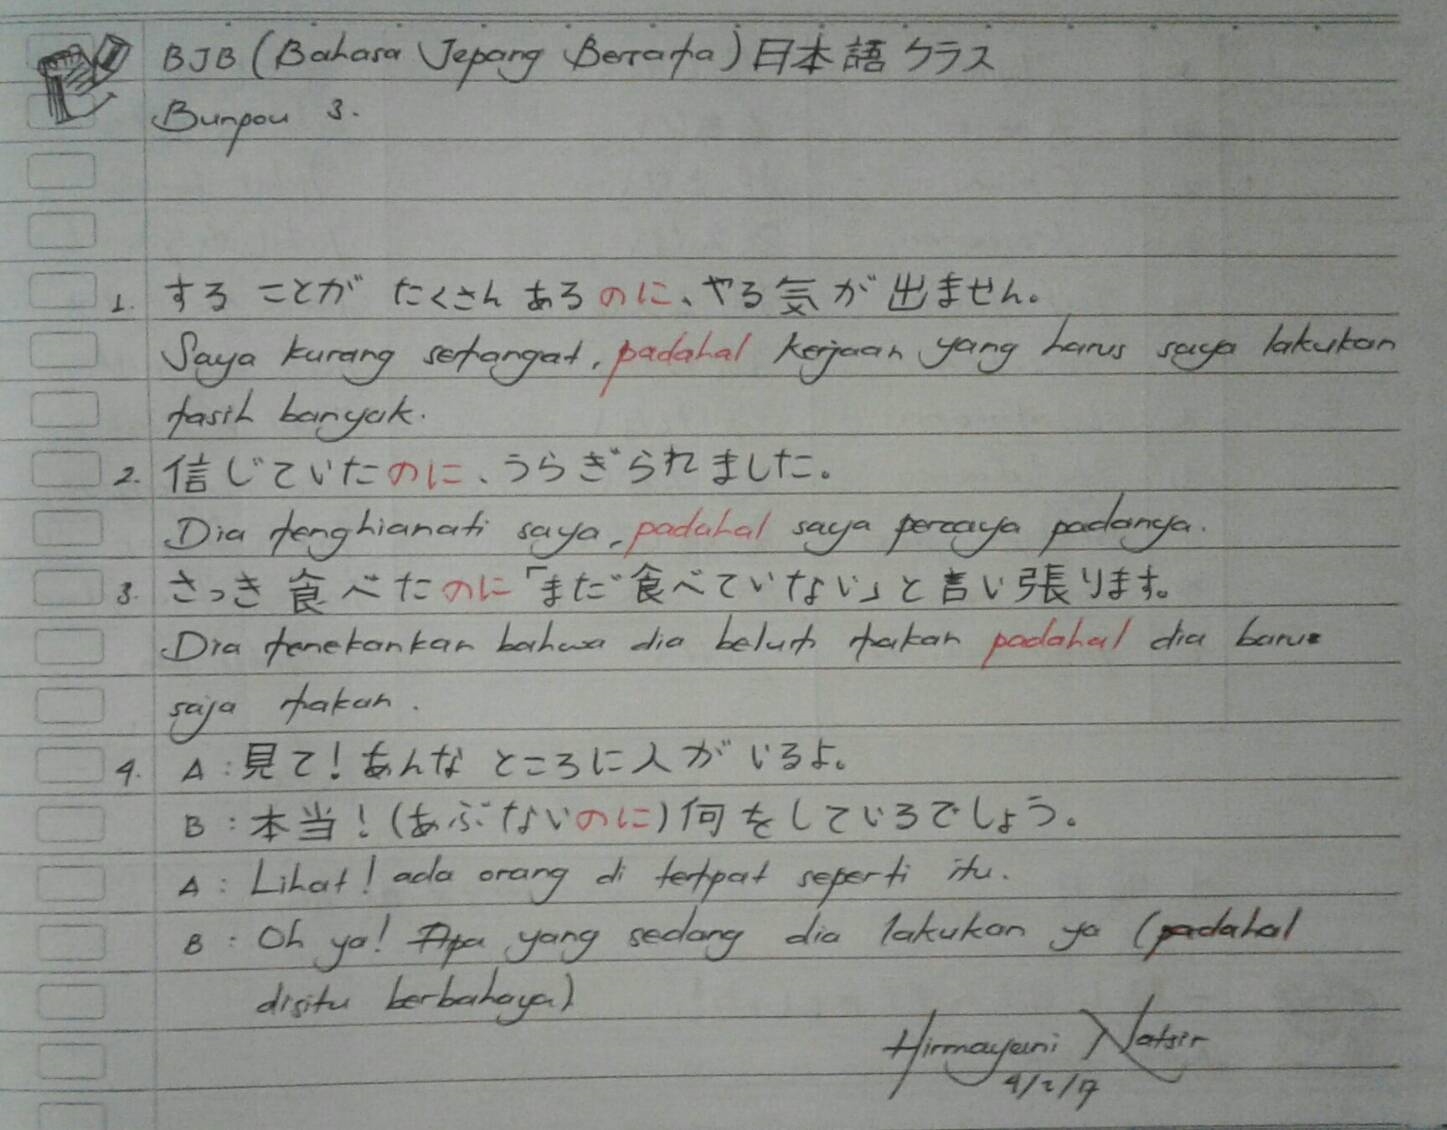 BJB (Bahasa Jepang Bersama) 日本語 クラス
Bunpou 3.
1. する ことが たくさん あるのに、やる気が出ません。
Saya kurang semangat, padahal kerjaan yang harus saya lakukan
masih banyak.
2. 信じていたのに、うらぎられました。
Dia menghianati saya, padahal saya percaya padanya.
3. さっき 食べたのに「まだ食べていない」と言い張ります。
Dia menekankan bahwa dia belum makan padahal dia baru
saja makan.
4. A : 見て! あんな ところに人が いるよ。
B : 本当! (あぶないのに) 何をしているでしょう。
A : Lihat! ada orang di tempat seperti itu.
B : Oh ya! Apa yang sedang dia lakukan ya (padahal
disitu berbahaya)
Hirmayani Natsir
4/2/17